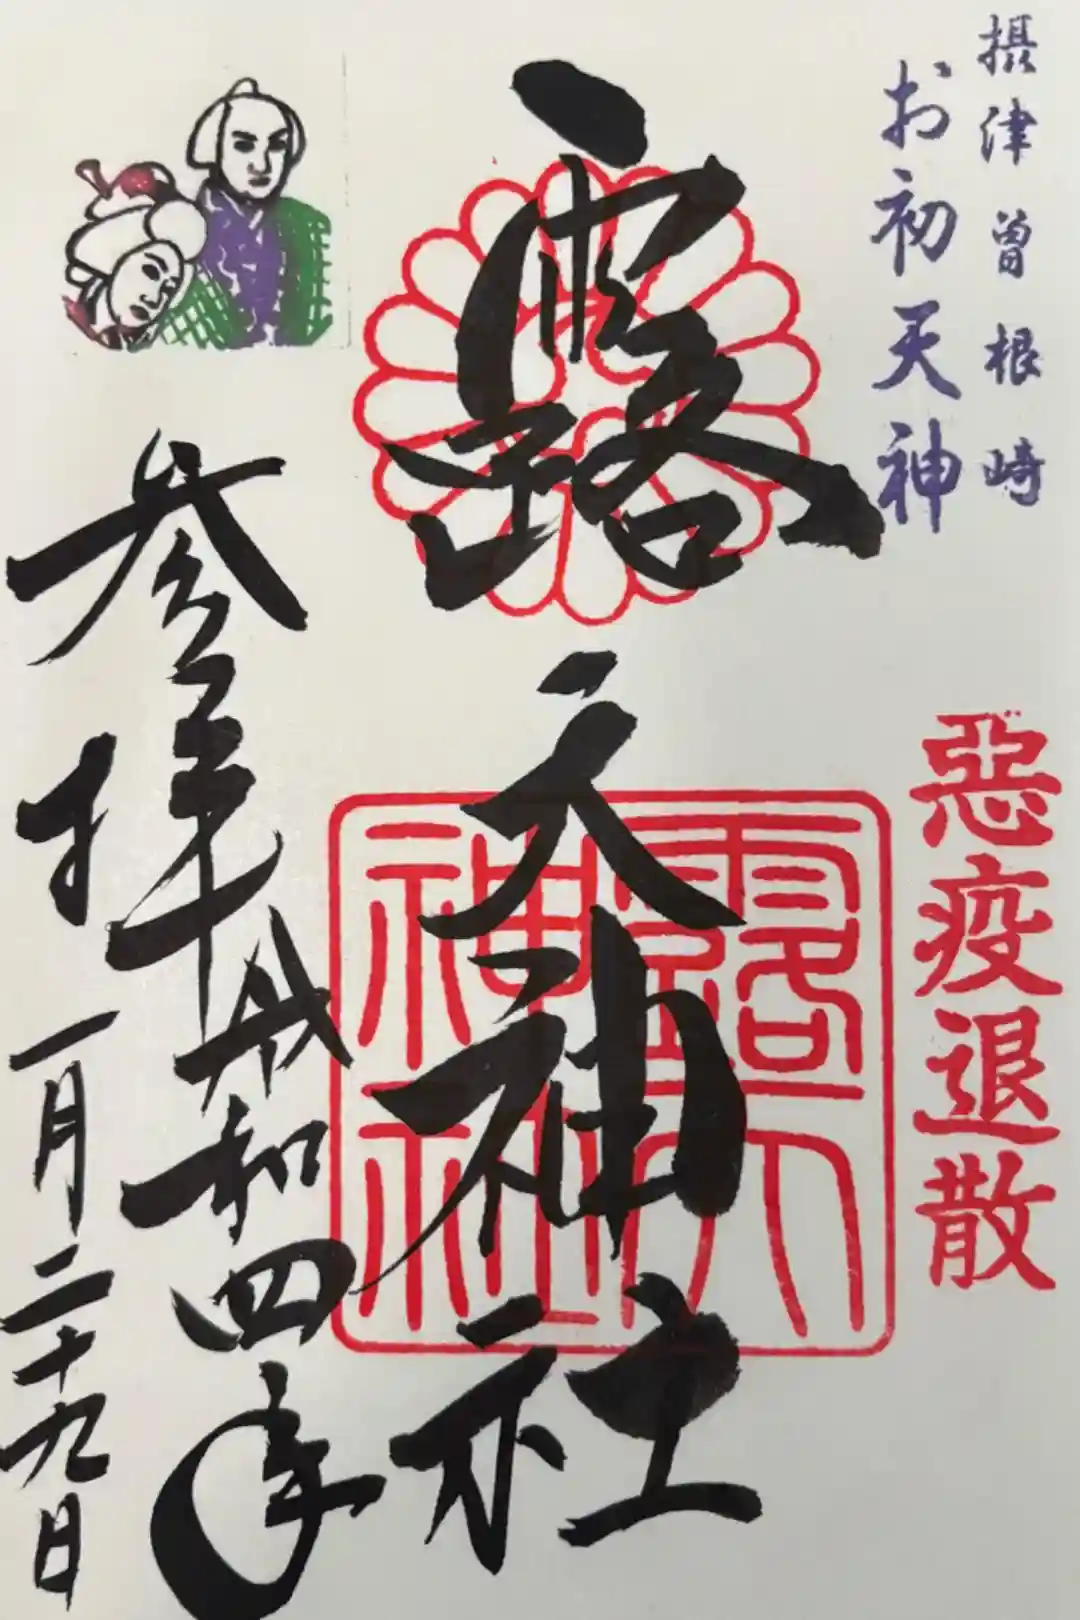 摂津曽根崎
お初天神
悪疫退散
露天神社
露天
神社
参拝
令和四年
一月二十九日